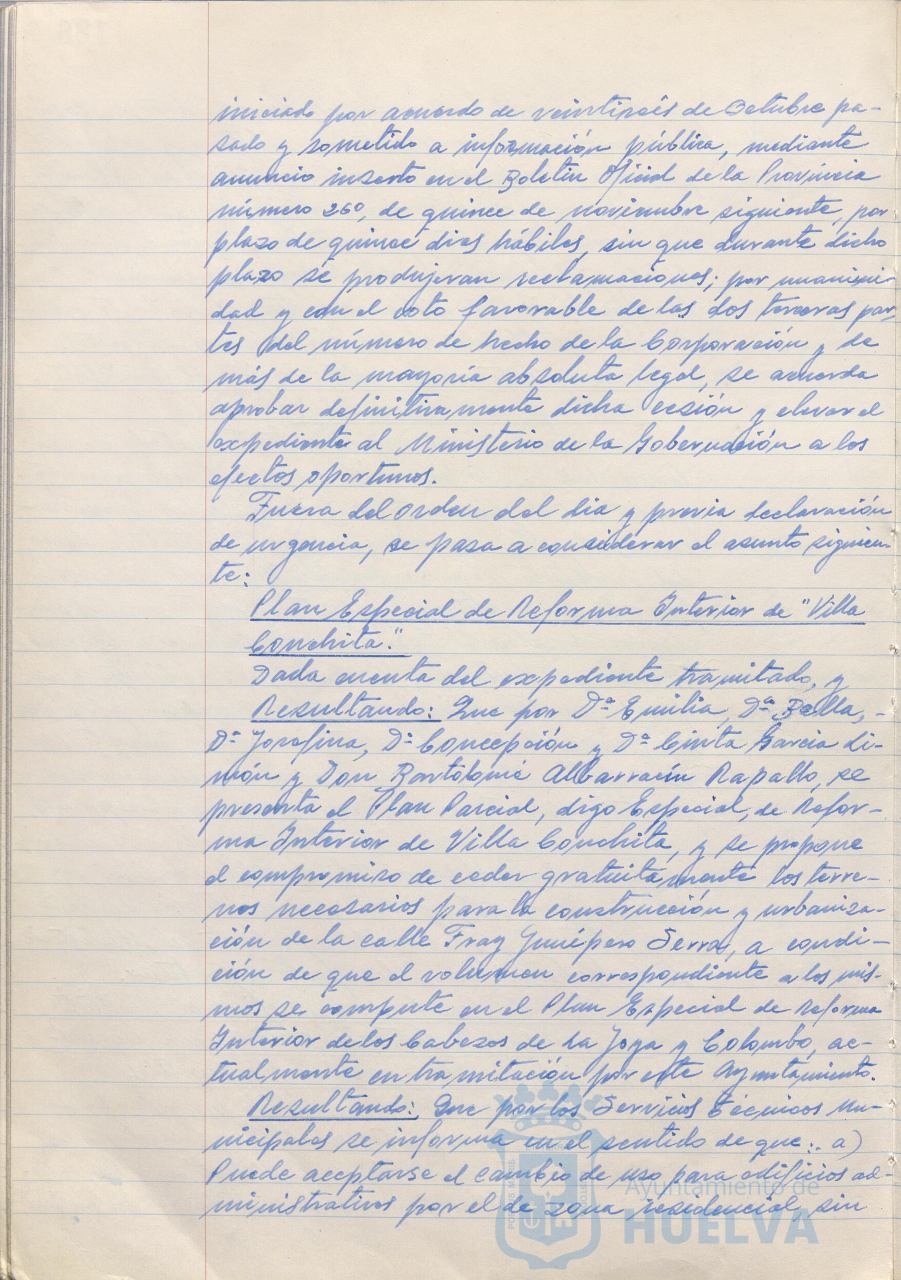 iniciado por acuerdo de veintiseis de Octubre pa-
sado y sometido a información pública, mediante
anuncio inserto en el Boletín Oficial de la Provincia
número 260, de quince de noviembre siguiente, por
plazo de quince dias hábiles, sin que durante dicho
plazo se produjeran reclamaciones; por unanimi-
dad y con el voto favorable de las dos terceras par-
tes del número de hecho de la Corporación y de
más de la mayoría absoluta legal, se acuerda
aprobar definitivamente dicha cesión y elevar el
expediente al Ministerio de la Gobernación a los
efectos oportunos.
Fuera del orden del dia y previa declaración
de urgencia, se pasa a considerar el asunto siguien-
te:
Plan Especial de Reforma Interior de "Villa
Conchita."
Dada cuenta del expediente tramitado, y
Resultando: Que por Dª Emilia, Dª Bella,-
Dª Josefina, Dª Concepción y Dª Cinta Garcia Li-
món y Don Bartolomé Albarracín Rapallo, se
presenta el Plan Parcial, digo Especial, de Refor-
ma Interior de Villa Conchita, y se propone
el compromiso de ceder gratuitamente los terre-
nos necesarios para la construcción y urbaniza-
ción de la calle Fray Junípero Serra, a condi-
ción de que el volumen correspondiente a los mis-
mos se compute en el Plan Especial de Reforma
Interior de los Cabezos de La Joya y Colombo, ac-
tualmente en tramitación por este Ayuntamiento.
Resultando: Que por los Servicios técnicos mu-
nicipales se informa en el sentido de que: a)
Puede aceptarse el cambio de uso para edificios ad-
ministrativos por el de zona residencial, sin
Ayuntamiento de
HUELVA